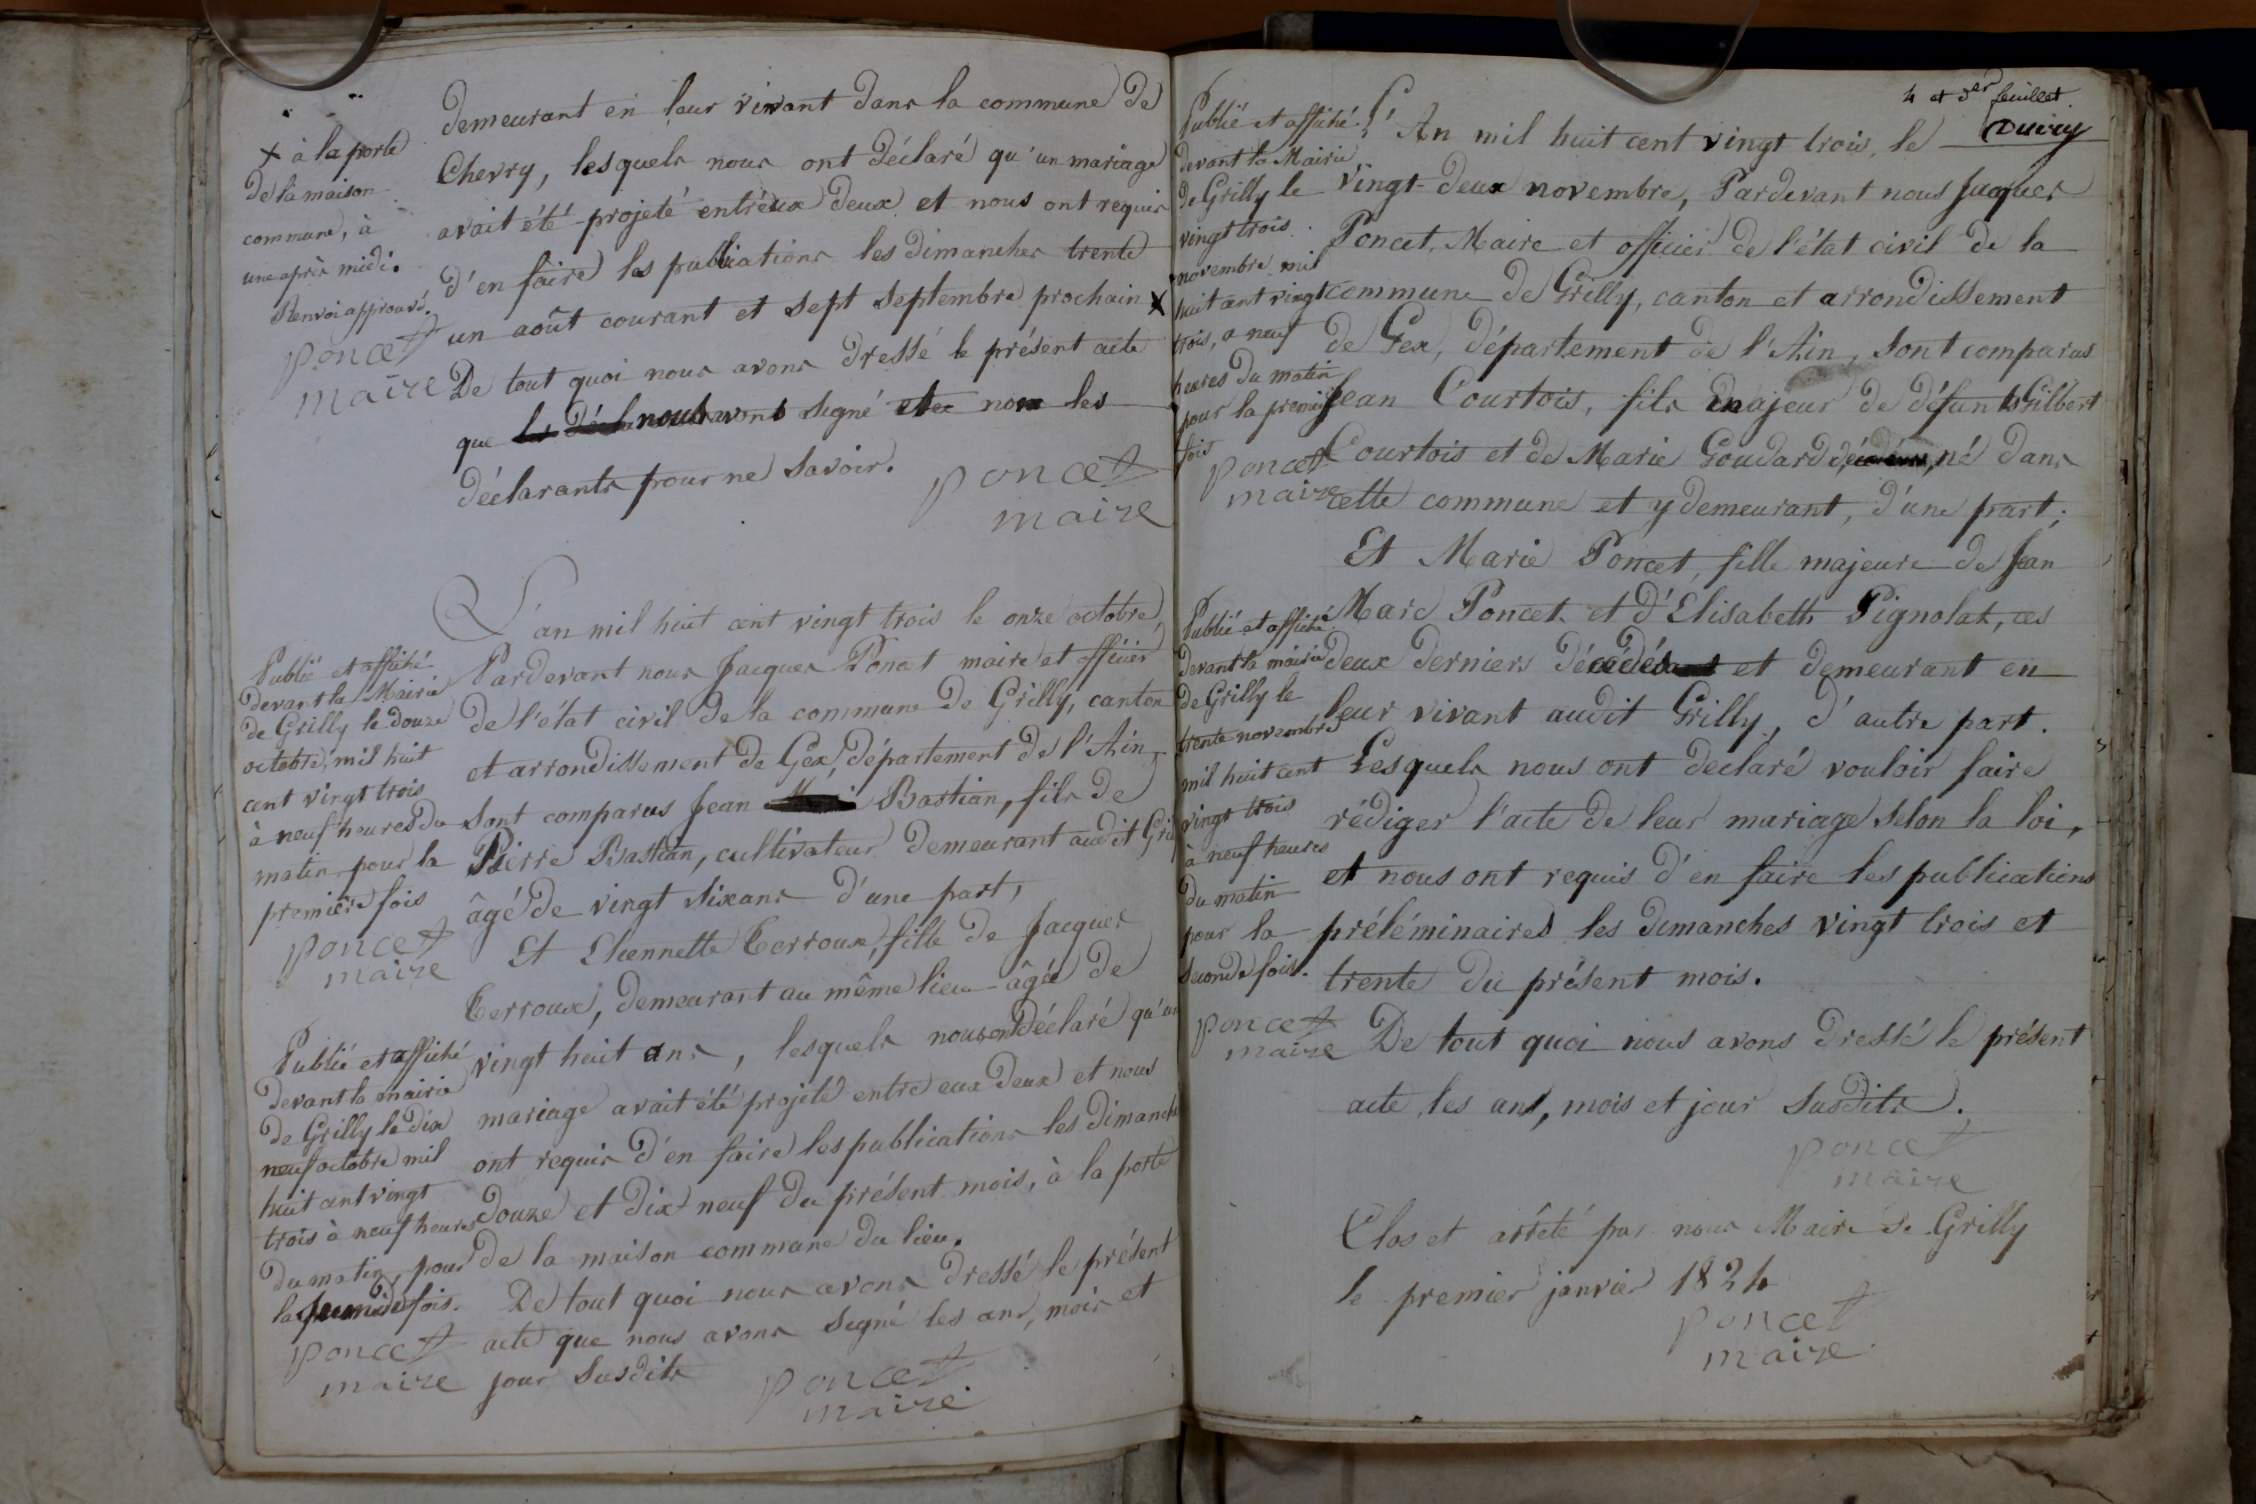 x à la porte
de la maison
commune, à
une après midi.
Renvoi approuvé.
Poncet
maire
demeurant en leur vivant dans la commune de
Chevry, lesquels nous ont déclaré qu'un mariage
avait été projeté entr'eux deux et nous ont requis
d'en faire les publications les dimanches trente
un août courant et sept septembre prochain x
De tout quoi nous avons dressé le présent acte
que nous avons signé et non les
déclarants pour ne savoir.
Poncet
maire
Publié et affiché
devant la Mairie
de Grilly le douze
octobre, mil huit
cent vingt trois
à neuf heures du
matin pour la
première fois
Poncet
maire
Publié et affiché
devant la mairie
de Grilly le dix
neuf octobre mil
huit cent vingt
trois à neuf heures
du matin, pour
la seconde fois.
Poncet
maire
L'an mil huit cent vingt trois le onze octobre,
Pardevant nous Jacques Poncet maire et officier
de l'état civil de la commune de Grilly, canton
et arrondissement de Gex, département de l'Ain,
sont comparus Jean Bastian, fils de
Pierre Bastian, cultivateur demeurant audit Gril
âgé de vingt six ans d'une part,
Et Etiennette Terroux, fille de Jacques
Terroux, demeurant au même lieu âgée de
vingt huit ans, lesquels nous ont déclaré qu'un
mariage avait été projeté entre eux deux et nous
ont requis d'en faire les publications les dimanch
douze et dix neuf du présent mois, à la porte
de la maison commune du lieu.
De tout quoi nous avons dressé le présent
acte que nous avons signé les ans, mois et
jour susdits
Poncet
maire
4 et 5er feuillet.
Publié et affiché
devant la Mairie
de Grilly le
vingt trois
novembre mil
huit cent vingt
trois, a neuf
heures du matin
pour la premiere
fois
Poncet
maire
Publié et affiché
devant la mairie
de Grilly le
trente novembre
mil huit cent
vingt trois
à neuf heures
du matin
pour la
seconde fois.
Poncet
maire
L'An mil huit cent vingt trois, le
vingt-deux novembre, Pardevant nous Jacques
Poncet, Maire et officier de l'état civil de la
commune de Grilly, canton et arrondissement
de Gex, département de l'Ain, sont comparus
Jean Courtois, fils majeur de défunts Gilbert
Courtois et de Marie Goudard, né dans
cette commune et y demeurant, d'une part;
Et Marie Poncet, fille majeure de Jean
Marc Poncet et d'Elisabeth Pignolat, ces
deux derniers décédés et demeurant en
leur vivant audit Grilly, d'autre part.
Lesquels nous ont declaré vouloir faire
rédiger l'acte de leur mariage selon la loi,
et nous ont requis d'en faire les publications
préléminaires les dimanches vingt trois et
trente du présent mois.
De tout quoi nous avons dressé le présent
acte, les ans, mois et jour susdits.
Poncet
maire
Clos et arrêté par nous Maire de Grilly
le premier janvier 1824
Poncet
maire